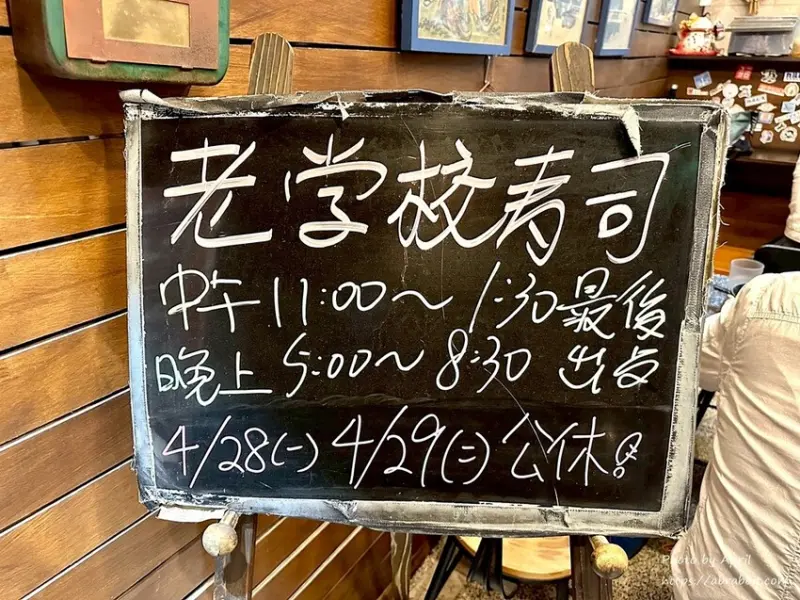 老学校寿司
中午 11:00～1:30 最後
晚上 5:00～8:30 出点
4/28(一) 4/29(二) 公休!
Photo by April